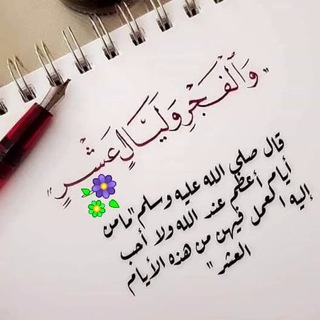 "وَالْفَجْرِ وَلَيَالٍ عَشْرٍ"
قال صلى الله عليه وسلم "ما من
أيام أعظم عند الله ولا أحب
إليه العمل فيهن من هذه الأيام
العشر"